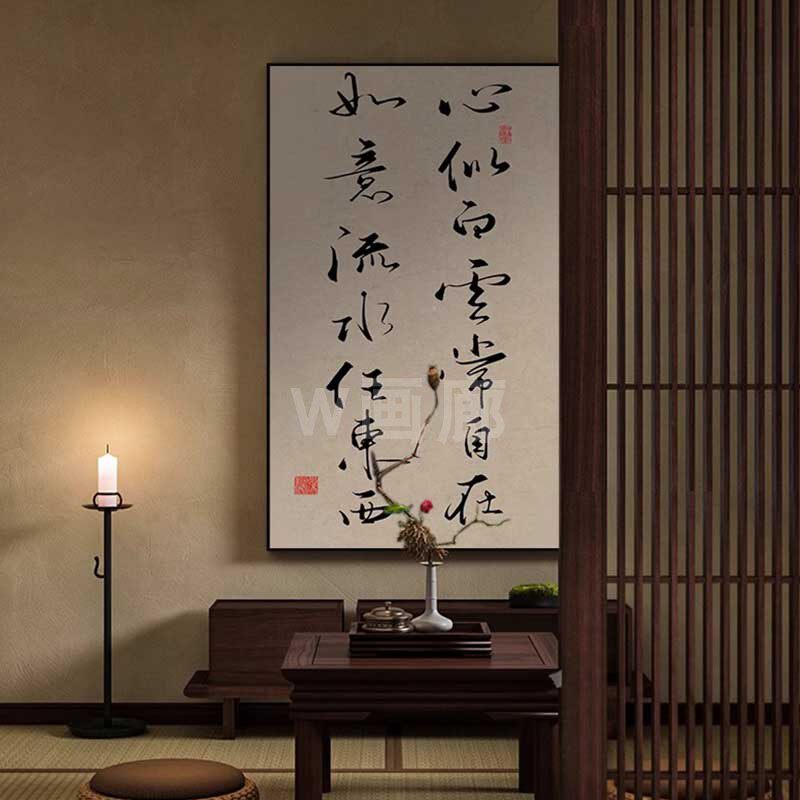 心似白雲常自在
如意流水任東西
W画廊